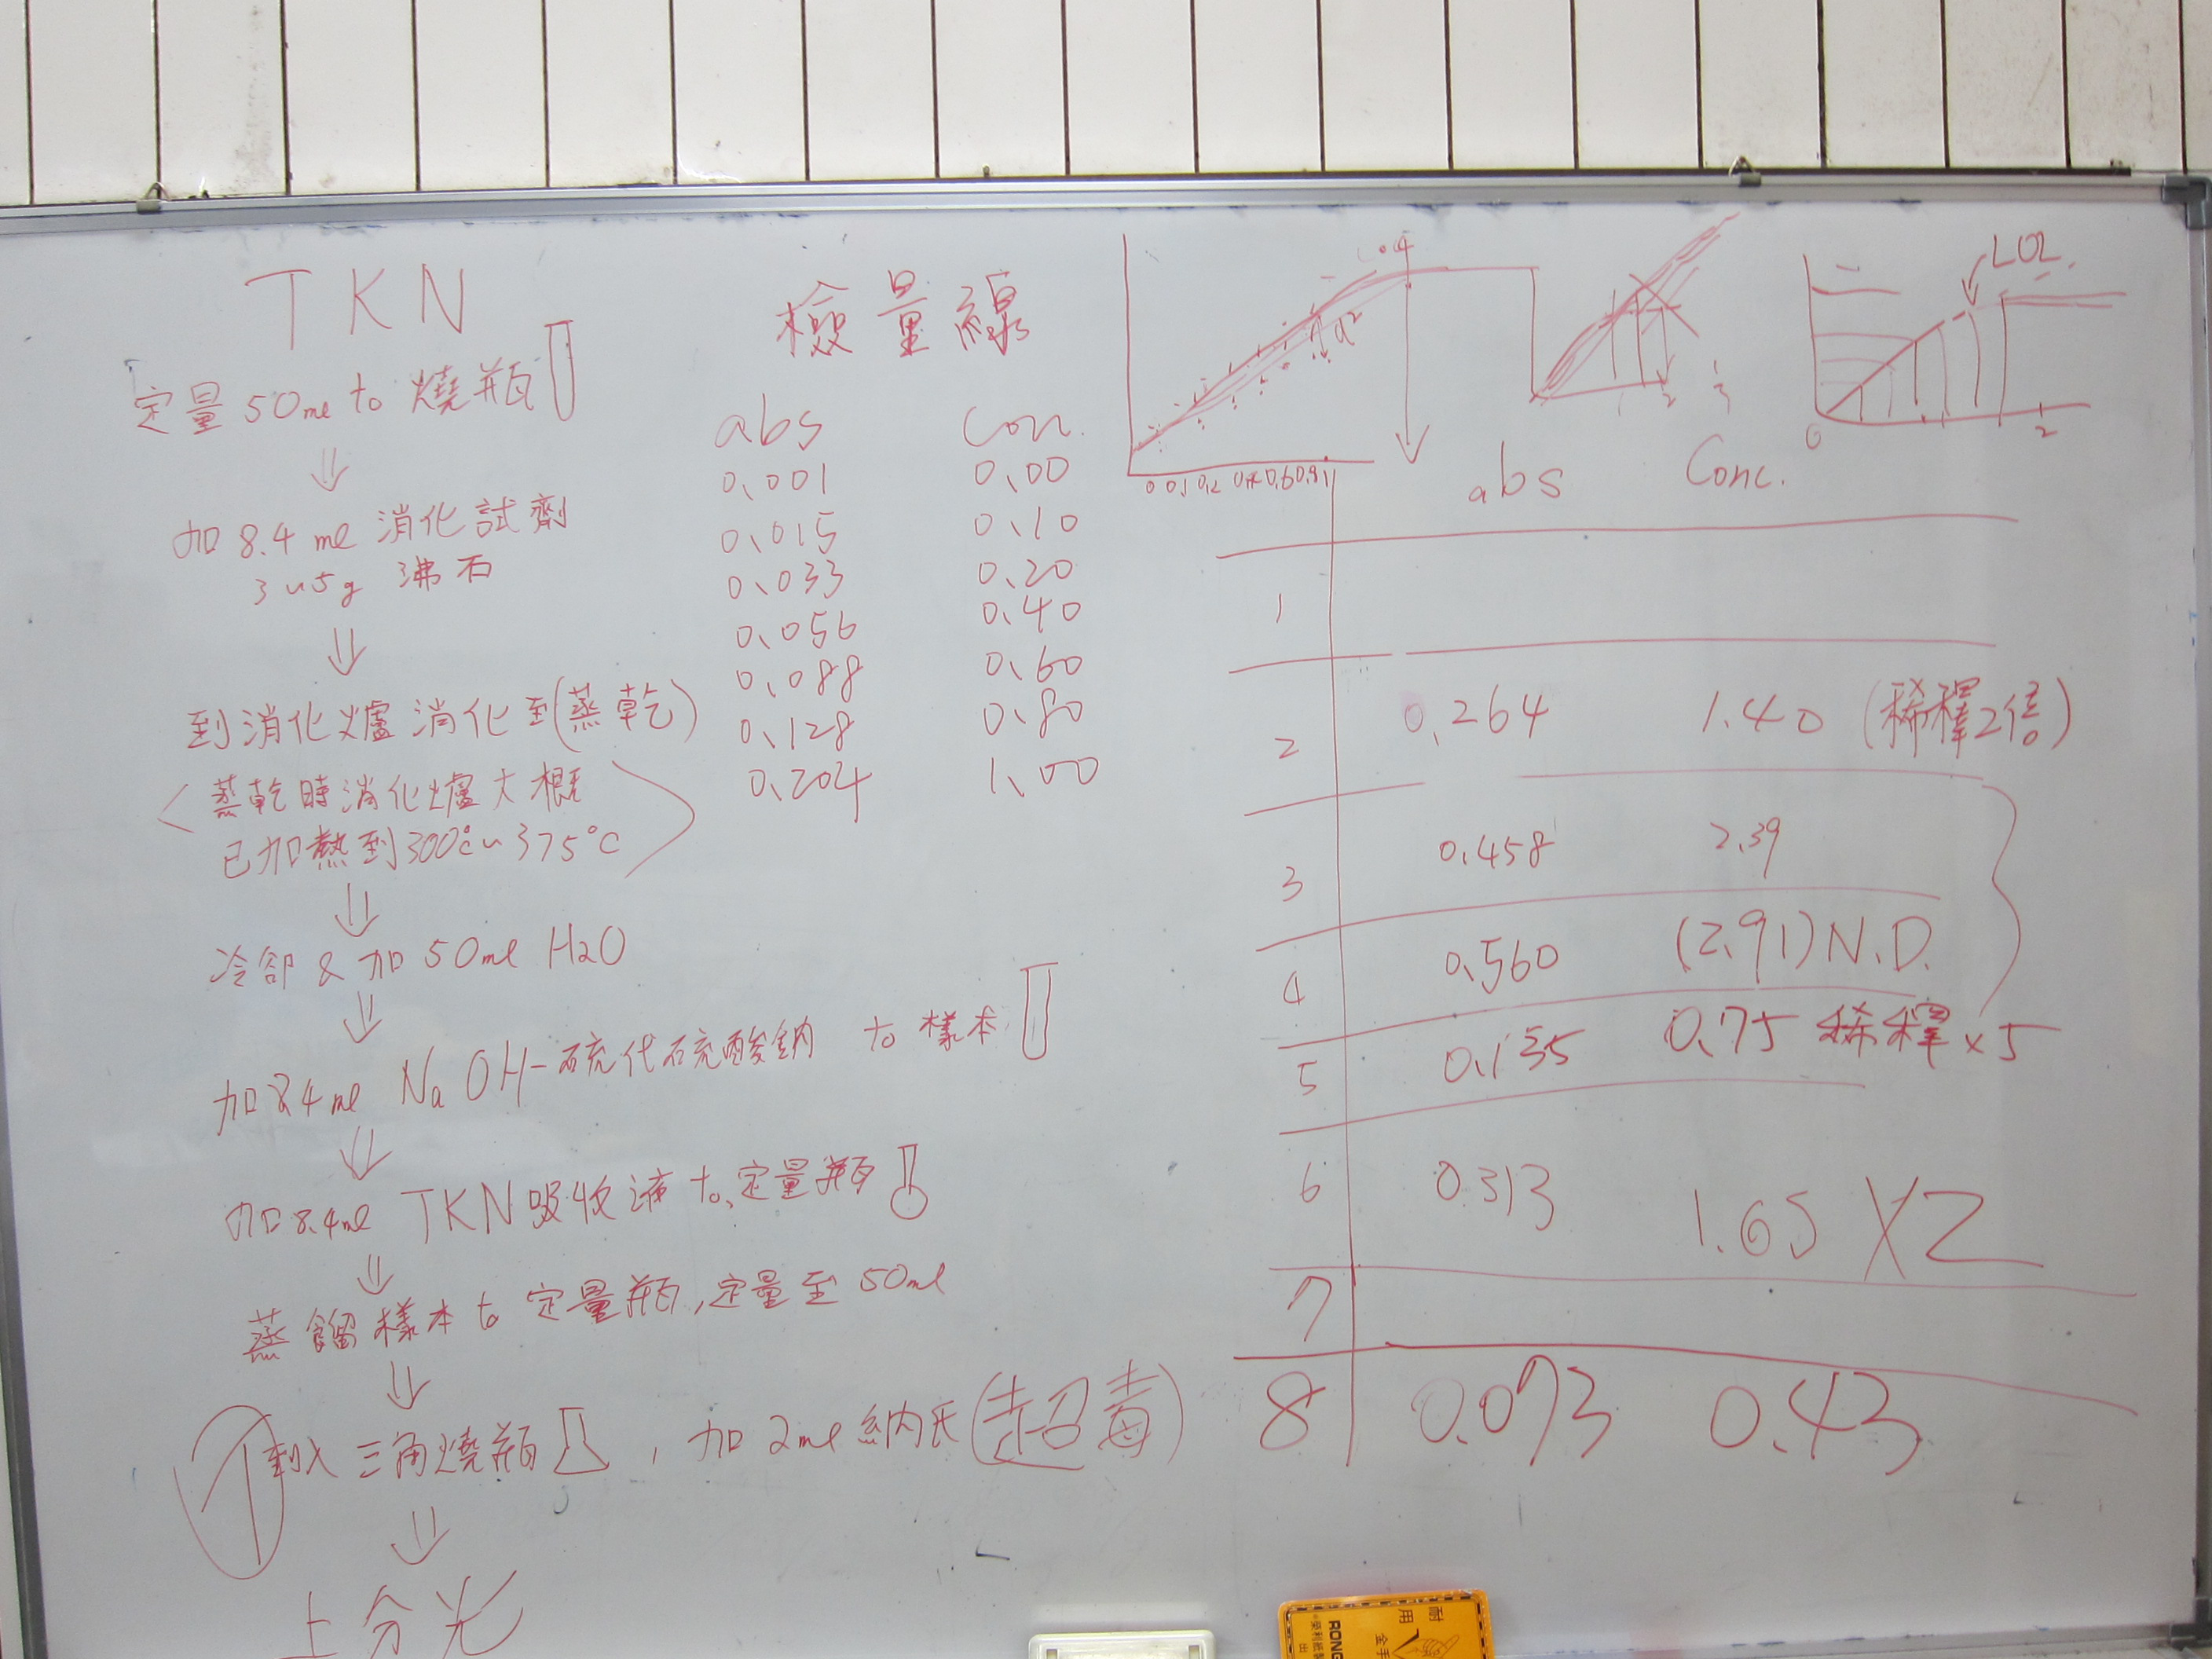 TKN
定量 50ml to 燒瓶
⇓
加 8.4 ml 消化試劑
3~5g 沸石
⇓
到消化爐消化到(蒸乾)
<蒸乾時消化爐大概
已加熱到300℃~375℃>
⇓
冷卻 & 加 50ml H2O
⇓
加8.4ml NaOH-硫代硫酸鈉 to 樣本
⇓
加8.4ml TKN吸收液 to 定量瓶
⇓
蒸餾樣本 to 定量瓶,定量至 50ml
⇓
倒入三角燒瓶, 加 2ml 納氏(超毒)
⇓
上分光
檢量線
abs Con.
0.001 0.00
0.015 0.10
0.033 0.20
0.056 0.40
0.088 0.60
0.128 0.80
0.204 1.00
LOL
0 2
abs Conc.
1
2 0.264 1.40 (稀釋2倍)
3 0.458 2.39
4 0.560 (2.91) N.D.
5 0.135 0.75 稀釋×5
6 0.313 1.65 X2
7
8 0.073 0.43
耐用
RONG